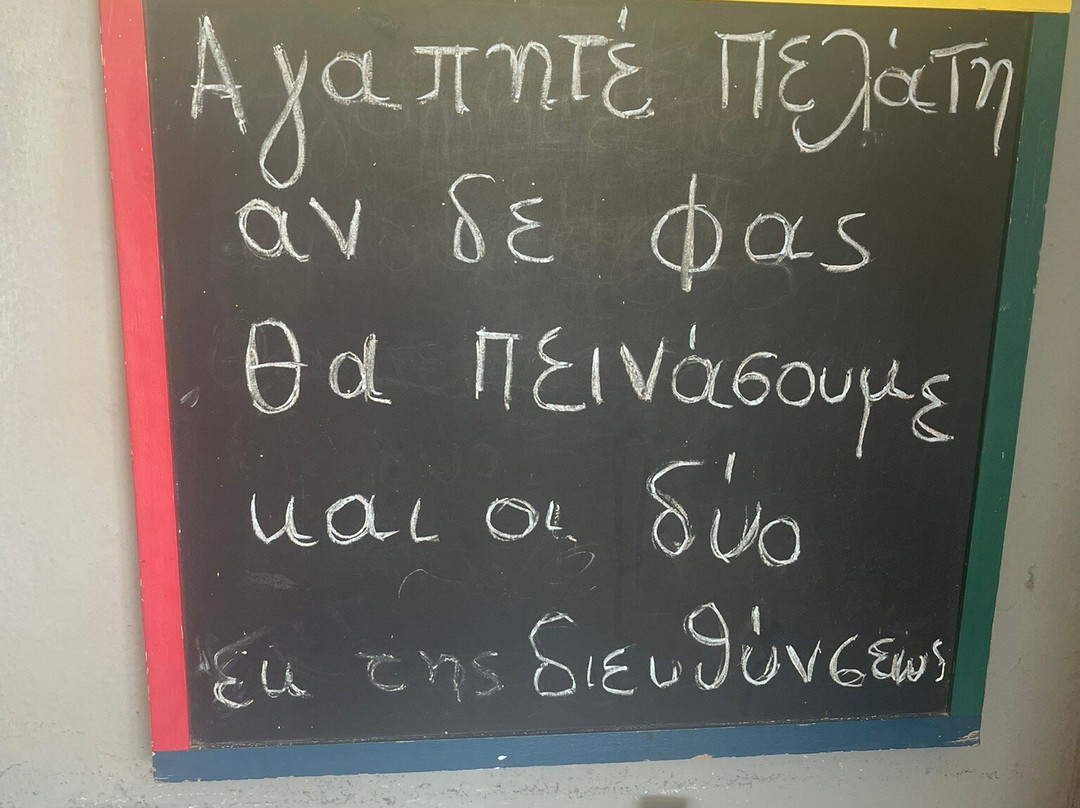 Αγαπητέ Πελάτη
αν δε φας
θα Πεινάσουμε
και οι δύο
Εκ της διευθύνσεως